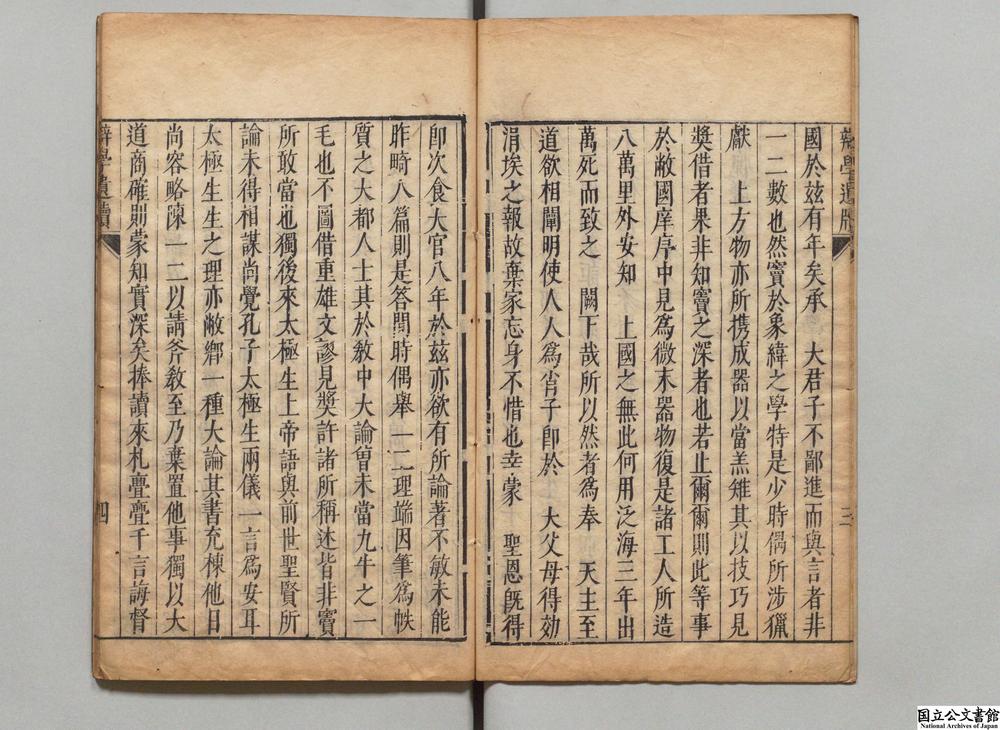 辯學遺牘
三
國於玆有年矣承　大君子不鄙進而與言者非
一二數也然竇於象緯之學特是少時偶所涉獵
獻　上方物亦所携成器以當羔雉其以技巧見
獎借者果非知竇之深者也若止爾爾則此等事
於敝國庠序中見爲微末器物復是諸工人所造
八萬里外安知　上國之無此何用泛海三年出
萬死而致之　闕下哉所以然者爲奉　天主至
道欲相闡明使人人爲肖子卽於　大父母得効
涓埃之報故棄家忘身不惜也幸蒙　聖恩旣得
卽次食大官八年於茲亦欲有所論著不敏未能
昨畸人八篇則是答問時偶舉一二理端因筆爲帙
質之大都人士其於敎中大論曾未當九牛之一
毛也不圖借重雄文謬見奬許諸所稱述皆非竇
所敢當也獨後來太極生上帝語與前世聖賢所
論未得相謀尚覺孔子太極生兩儀一言爲安耳
太極生生之理亦敝鄉一種大論其書充棟他日
尚容略陳一二以請斧敎至乃棄置他事獨以大
道商確則蒙知實深矣捧讀來札亹亹千言誨督
辯學遺牘
四
国立公文書館
National Archives of Japan